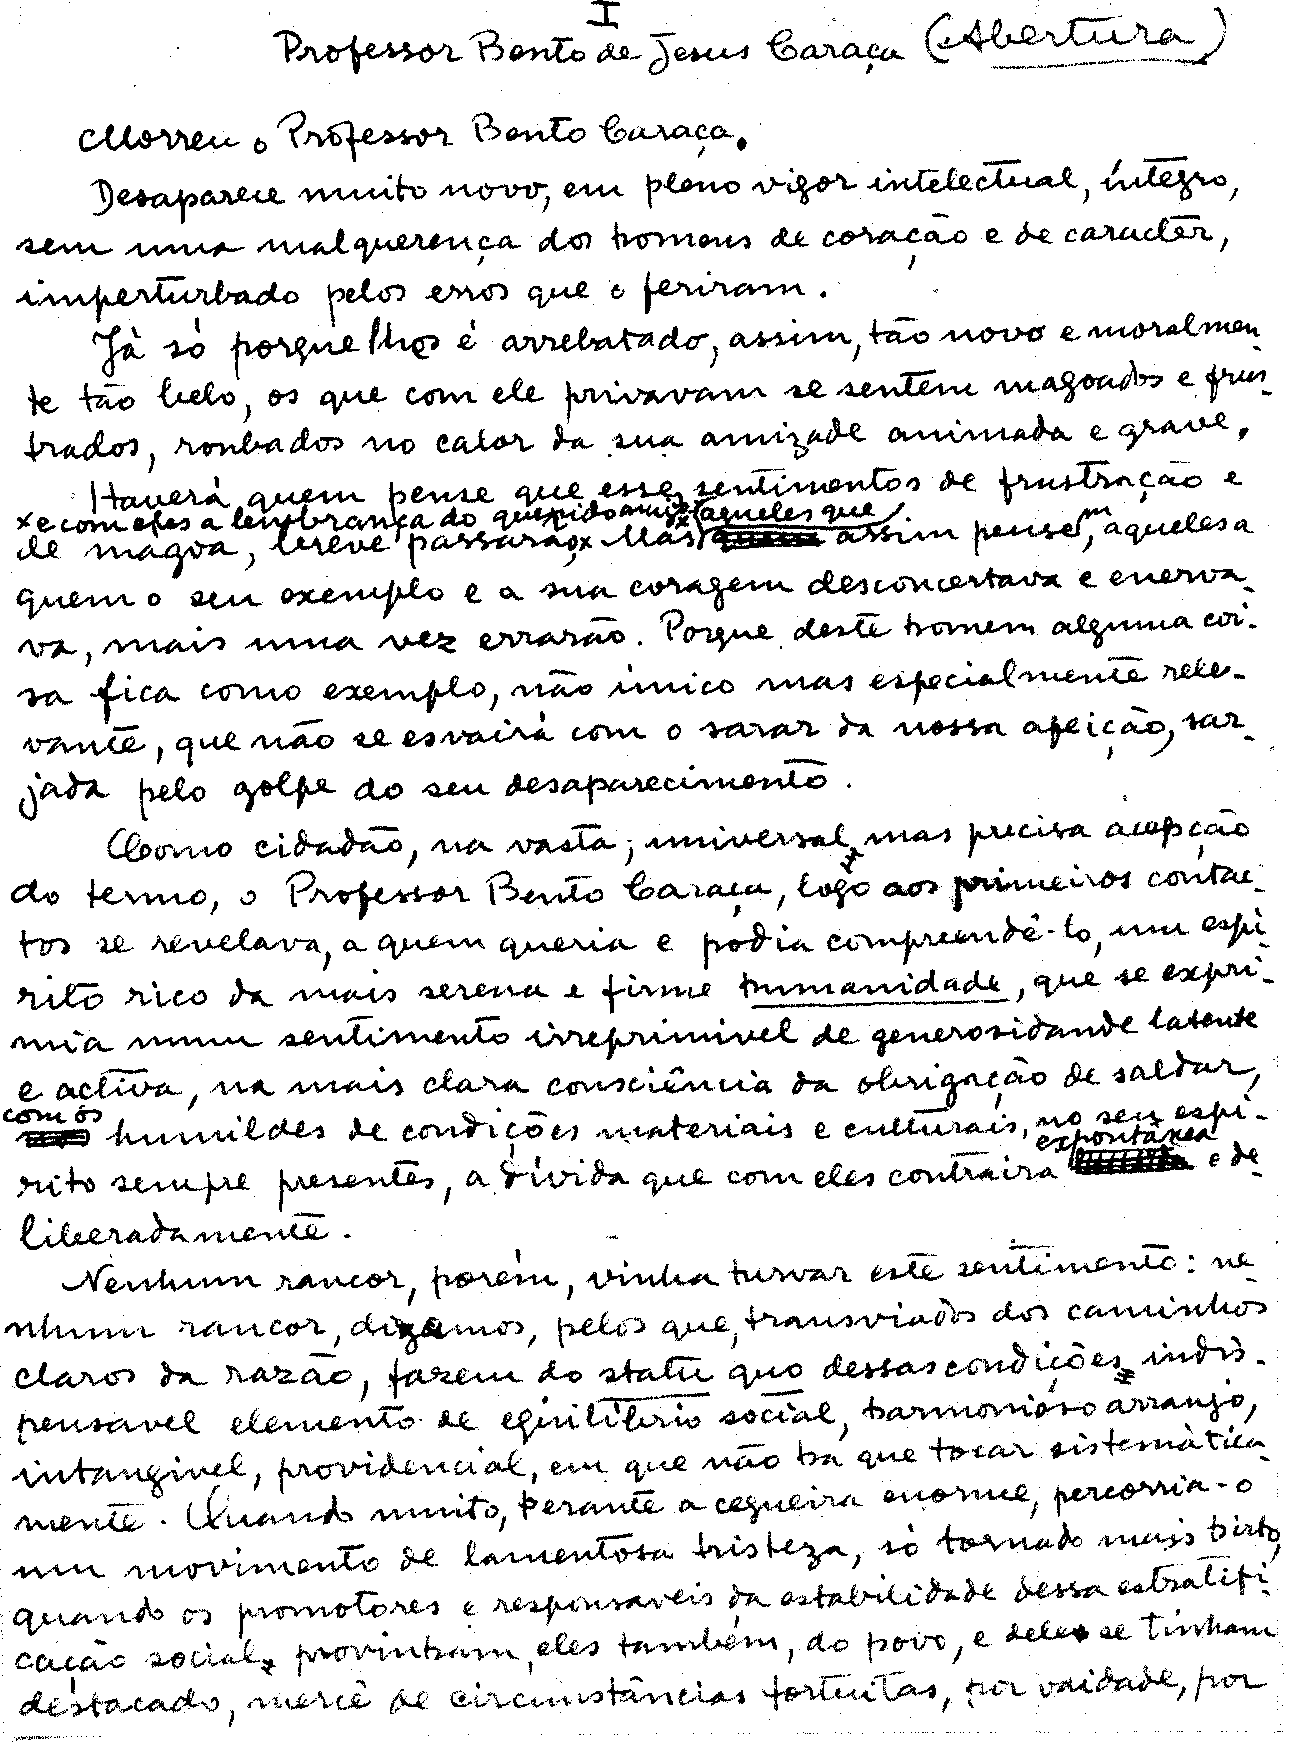 I
Professor Bento de Jesus Caraça (Abertura)
Morreu o Professor Bento Caraça.
Desaparece muito novo, em pleno vigor intelectual, íntegro,
sem uma malquerença dos homens de coração e de caracter,
imperturbado pelos erros que o feriram.
Já só porque lhes é arrebatado, assim, tão novo e moralmen-
te tão belo, os que com ele privavam se sentem magoados e frus-
trados, roubados no calor da sua amizade animada e grave.
Haverá quem pense que esses sentimentos de frustração e
x e com eles a lembrança do querido amigo x aqueles que
de magoa, breve passarão x Mas assim pensem, aqueles a
quem o seu exemplo e a sua coragem desconcertava e enerva-
va, mais uma vez errarão. Porque deste homem alguma coi-
sa fica como exemplo, não único mas especialmente rele-
vante, que não se esvairá com o sarar da nossa afeição, sar-
jada pelo golpe do seu desaparecimento.
Como cidadão, na vasta, universal, mas precisa acepção
do termo, o Professor Bento Caraça, logo aos primeiros contac-
tos se revelava, a quem queria e podia compreendê-lo, um espí-
rito rico da mais serena e firme humanidade, que se expri-
mia num sentimento irreprimivel de generosidande latente
e activa, na mais clara consciência da obrigação de saldar,
com os
humildes de condições materiais e culturais, no seu espí-
rito sempre presentes, a dívida que com eles contraira expontânea e de-
liberadamente.
Nenhum rancor, porém, vinha turvar este sentimento: ne-
nhum rancor, digamos, pelos que, transviados dos caminhos
claros da razão, fazem do statu quo dessas condições indis-
pensavel elemento de equilibrio social, harmonioso arranjo,
intangivel, providencial, em que não ha que tocar sistemàtica-
mente. Quando muito, perante a cegueira enorme, percorria-o
um movimento de lamentosa tristeza, só tornado mais hirto,
quando os promotores e responsaveis da estabilidade dessa estratifi-
cação social, provinham, eles também, do povo, e dele se tinham
destacado, mercê de circunstâncias fortuitas, por vaidade, por